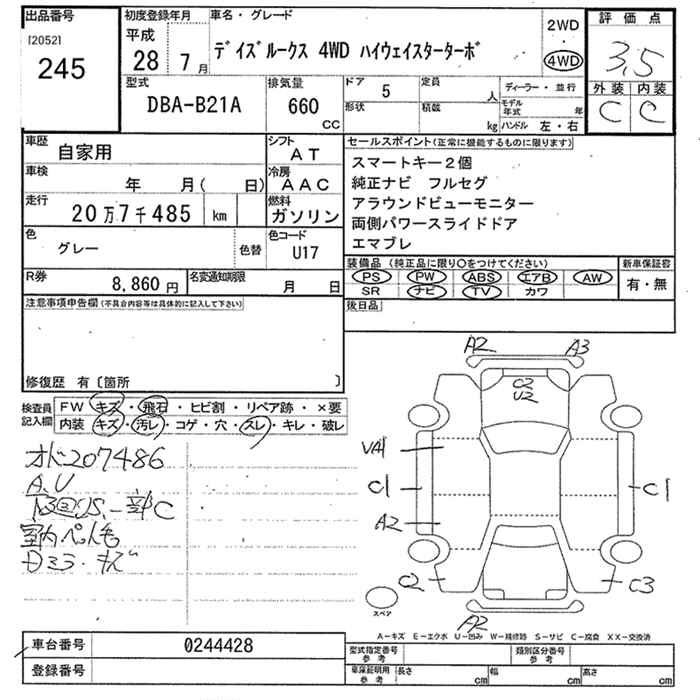 出品番号
[2052]
245
初度登録年月
平成
28年 7月
車名・グレード
デイズルークス 4WD ハイウェイスターターボ
2WD
4WD
評価点
3,5
外装 内装
C C
型式
DBA-B21A
排気量
660
CC
ドア 5
定員 人
形状
積載 kg
ディーラー・並行
モデル年式 年
ハンドル 左・右
車歴
自家用
シフト
AT
車検
年 月( 日)
冷房
AAC
走行
20万7千485 km
燃料
ガソリン
色
グレー
色替
色コード
U17
R券
8,860円
名変通知期限
月 日
セールスポイント(正常に機能するものに限ります)
スマートキー2個
純正ナビ フルセグ
アラウンドビューモニター
両側パワースライドドア
エマブレ
装備品(純正品に限り○をつけてください)
PS PW ABS エアB AW
SR ナビ TV カワ
新車保証書
有・無
後日品
注意事項申告欄(不具合内容等は具体的に記入して下さい)
修復歴 有〔箇所 〕
検査員記入欄
FW キズ・飛石・ヒビ割・リペア跡・×要
内装 キズ・汚レ・コゲ・穴・スレ・キレ・破レ
オド207486
A.U
一部C
室内ペット毛
キズ
A2
A3
C2
U2
C1
C1
A2
C2
C3
A2
スペア
A-キズ E-エクボ U-凹み W-補修跡 S-サビ C-腐食 XX-交換済
車台番号
0244428
登録番号
型式指定番号
参考
類別区分番号
参考
車庫証明用
参考
長さ cm
幅 cm
高さ cm